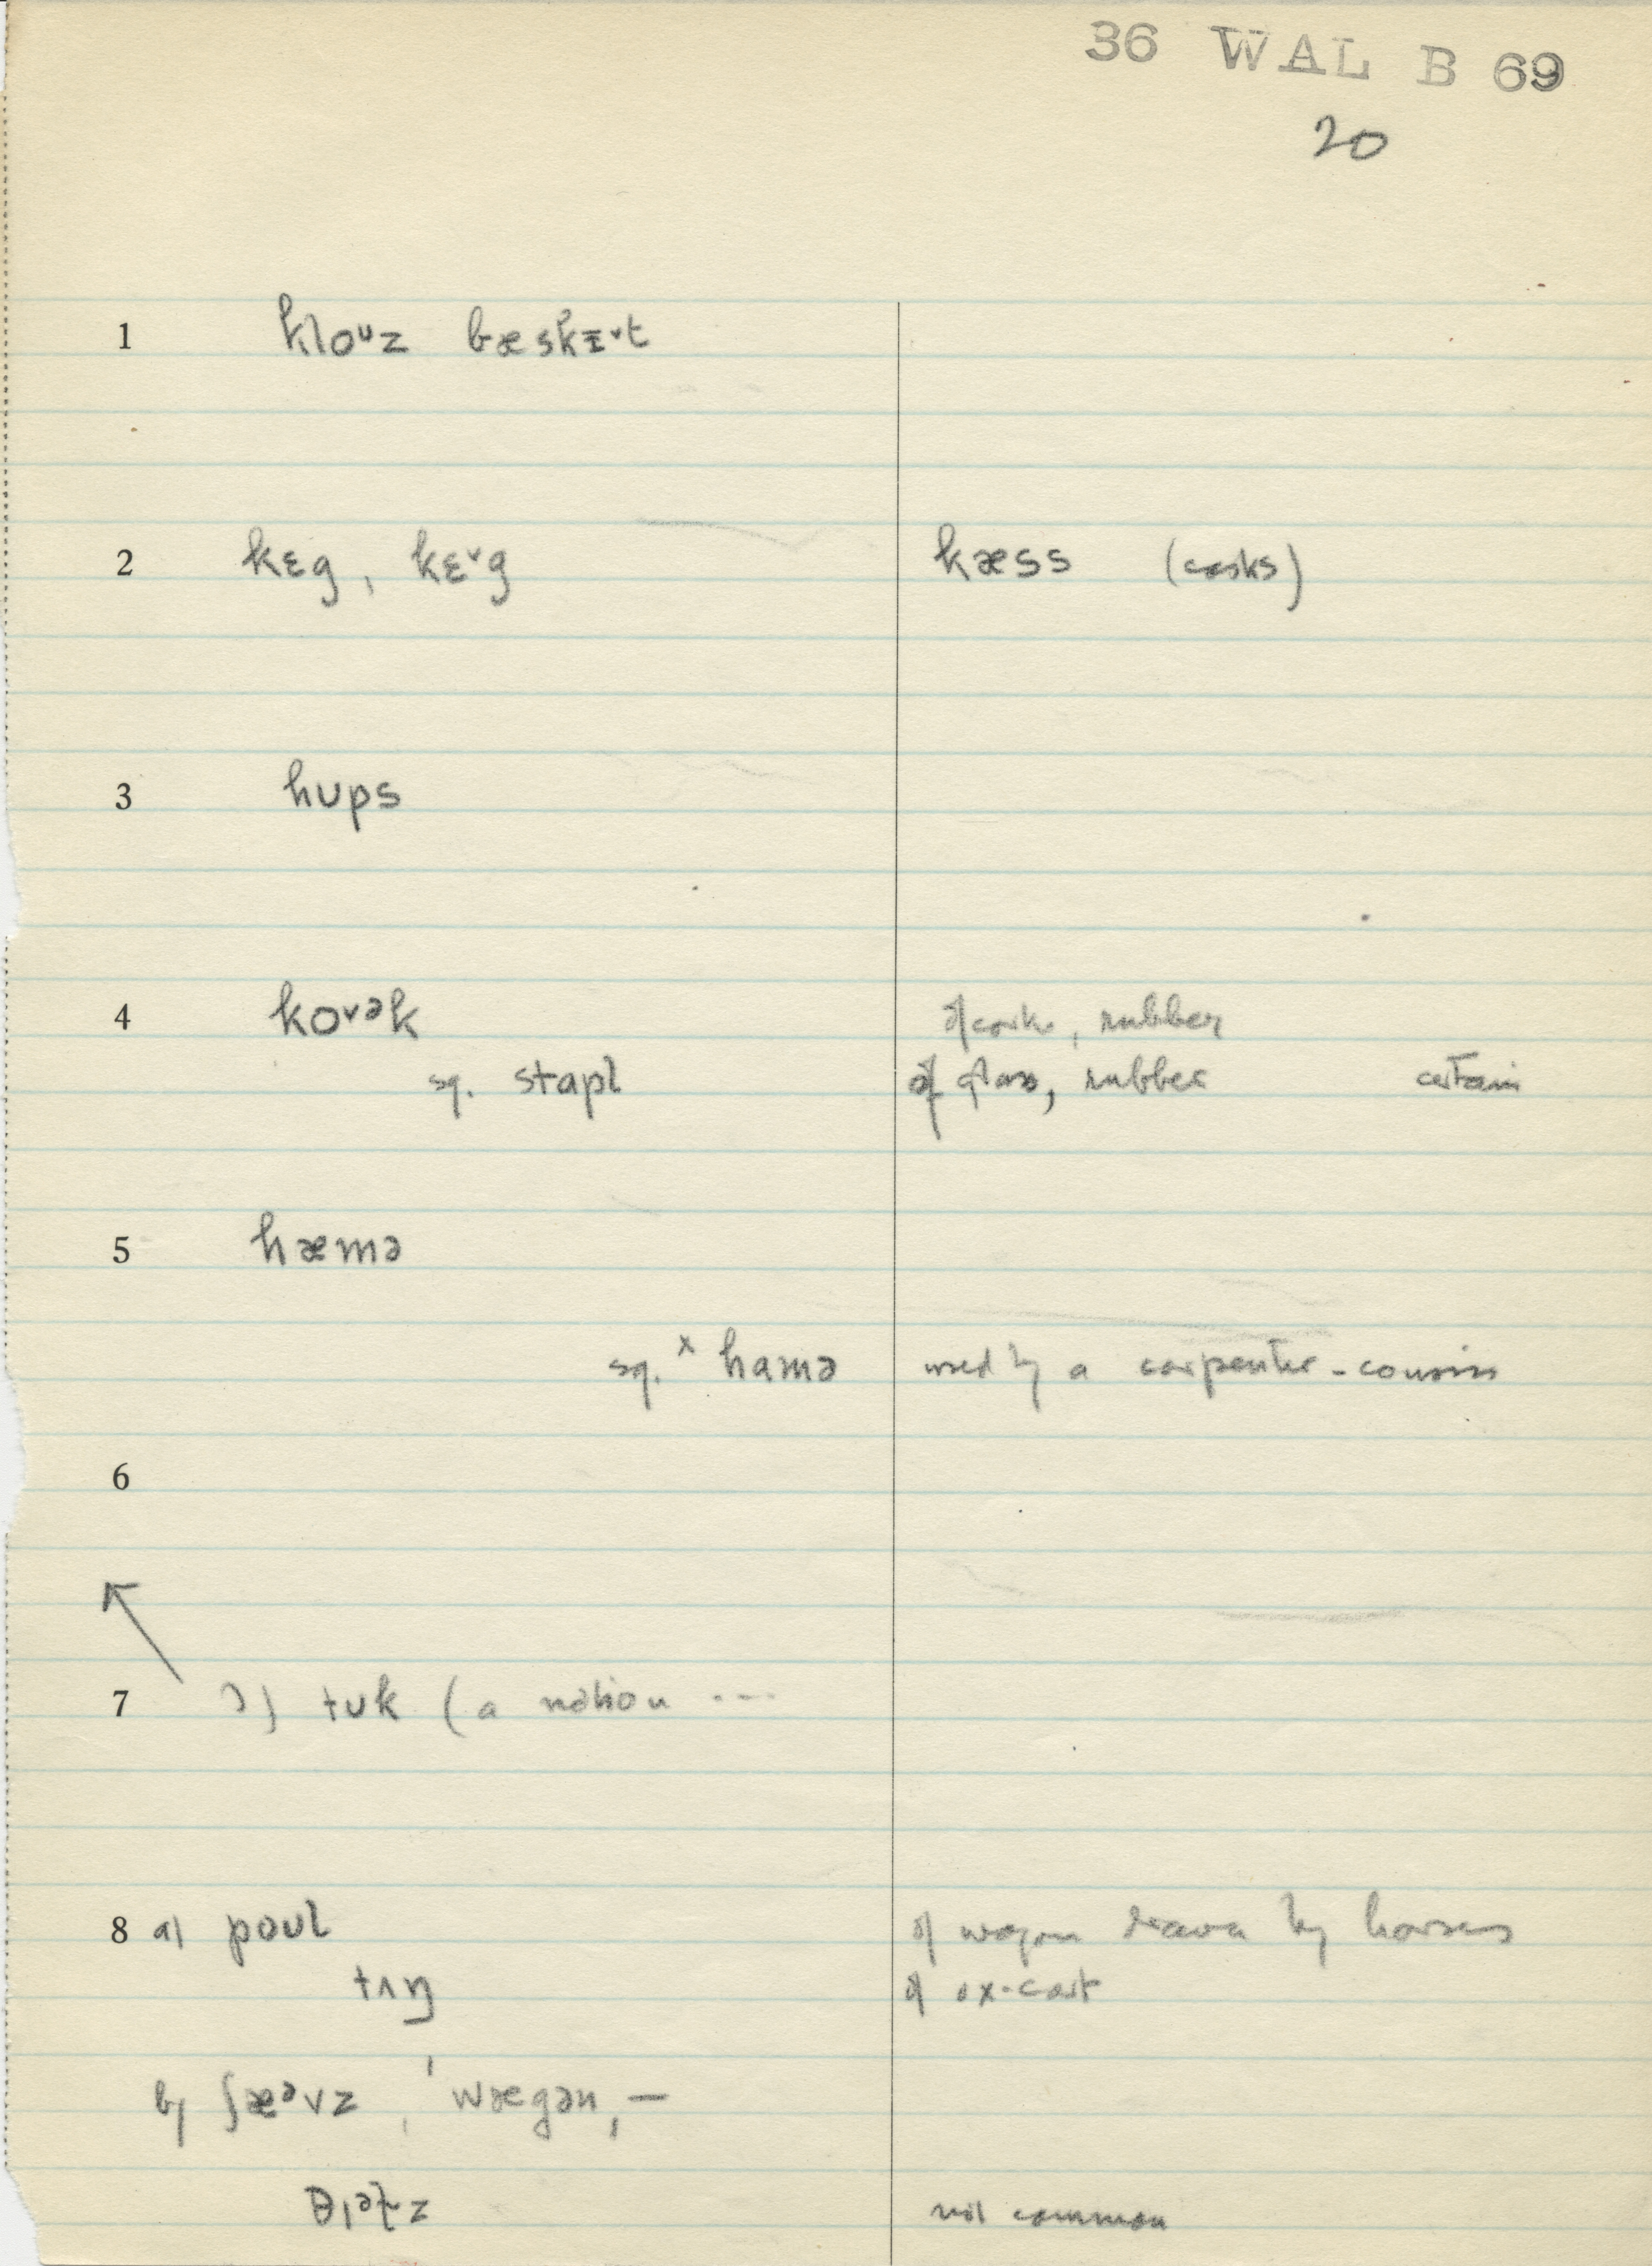 36 WAL B 69
20
1 kloᶷz bæskɪ˅t
2 kɛg, kɛ˅g kæss (casks)
3 hʊps
4 ko˅ᵊk of cork, rubber
sq. stapl of glass, rubber certain
5 hæmə
sq. ˣ hamə used by a carpenter-cousin
6
7 ɔ) tʊk (a notion ---
8 a) poʊl of wagon drawn by horses
tʌŋ of ox-cart
b) ʃæᵊvz, ˈwægən, —
not common